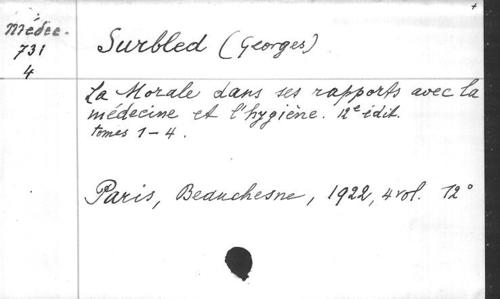 Médec.
731
4
Surbled (Georges)
La Morale dans ses rapports avec la
médecine et l'hygiène. 12e édit.
tomes 1-4.
Paris, Beauchesne, 1922, 4 vol. 12°